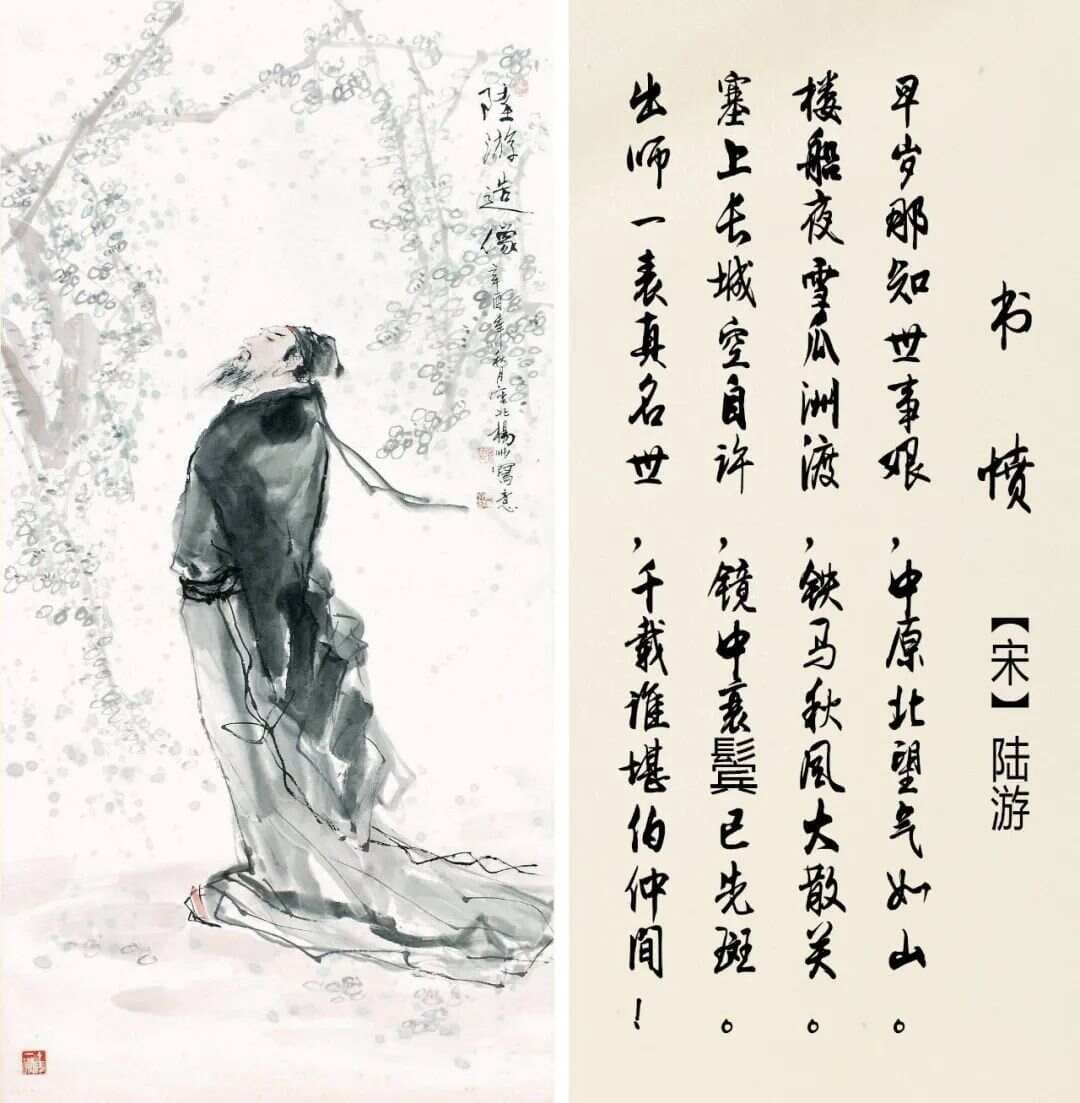 陸游造像
辛酉年秋月北楊寫意
书愤 【宋】陆游
早岁那知世事艰，中原北望气如山。
楼船夜雪瓜洲渡，铁马秋风大散关。
塞上长城空自许，镜中衰鬓已先斑。
出师一表真名世，千载谁堪伯仲间！